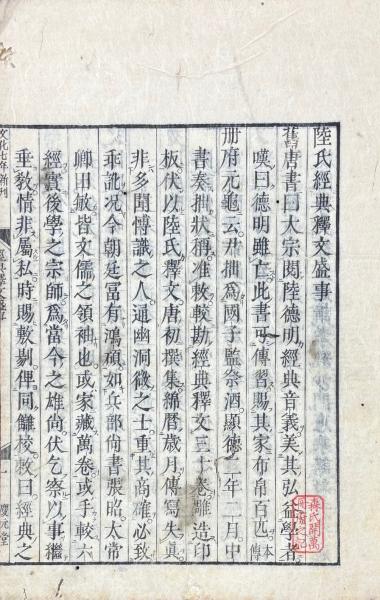 陸氏經典釋文盛事
舊唐書曰大宗閱陸德明經典音義美其弘益學者
嘆曰德明雖亡此書可傳習賜其家布帛百匹本傳
册府元龜云尹拙爲國子監祭酒顯德二年二月中
書奏拙狀稱准敕較勘經典釋文三十卷雕造印
板伏以陸氏釋文唐初撰集綿曆歲月傳寫失眞
非多聞博識之人通幽洞微之士重其商確必致
乖訛况今朝廷富有鴻碩如兵部尙書張昭太常
卿田敏皆文儒之領袖也或家藏萬卷或手較六
經實後學之宗師爲當今之雄尙伏乞察以事繼
垂敎情非屬私時賜敷剔俾同讎校敕曰經典之
文化七年新刊
一
慶元堂
森氏開萬
冊府之記